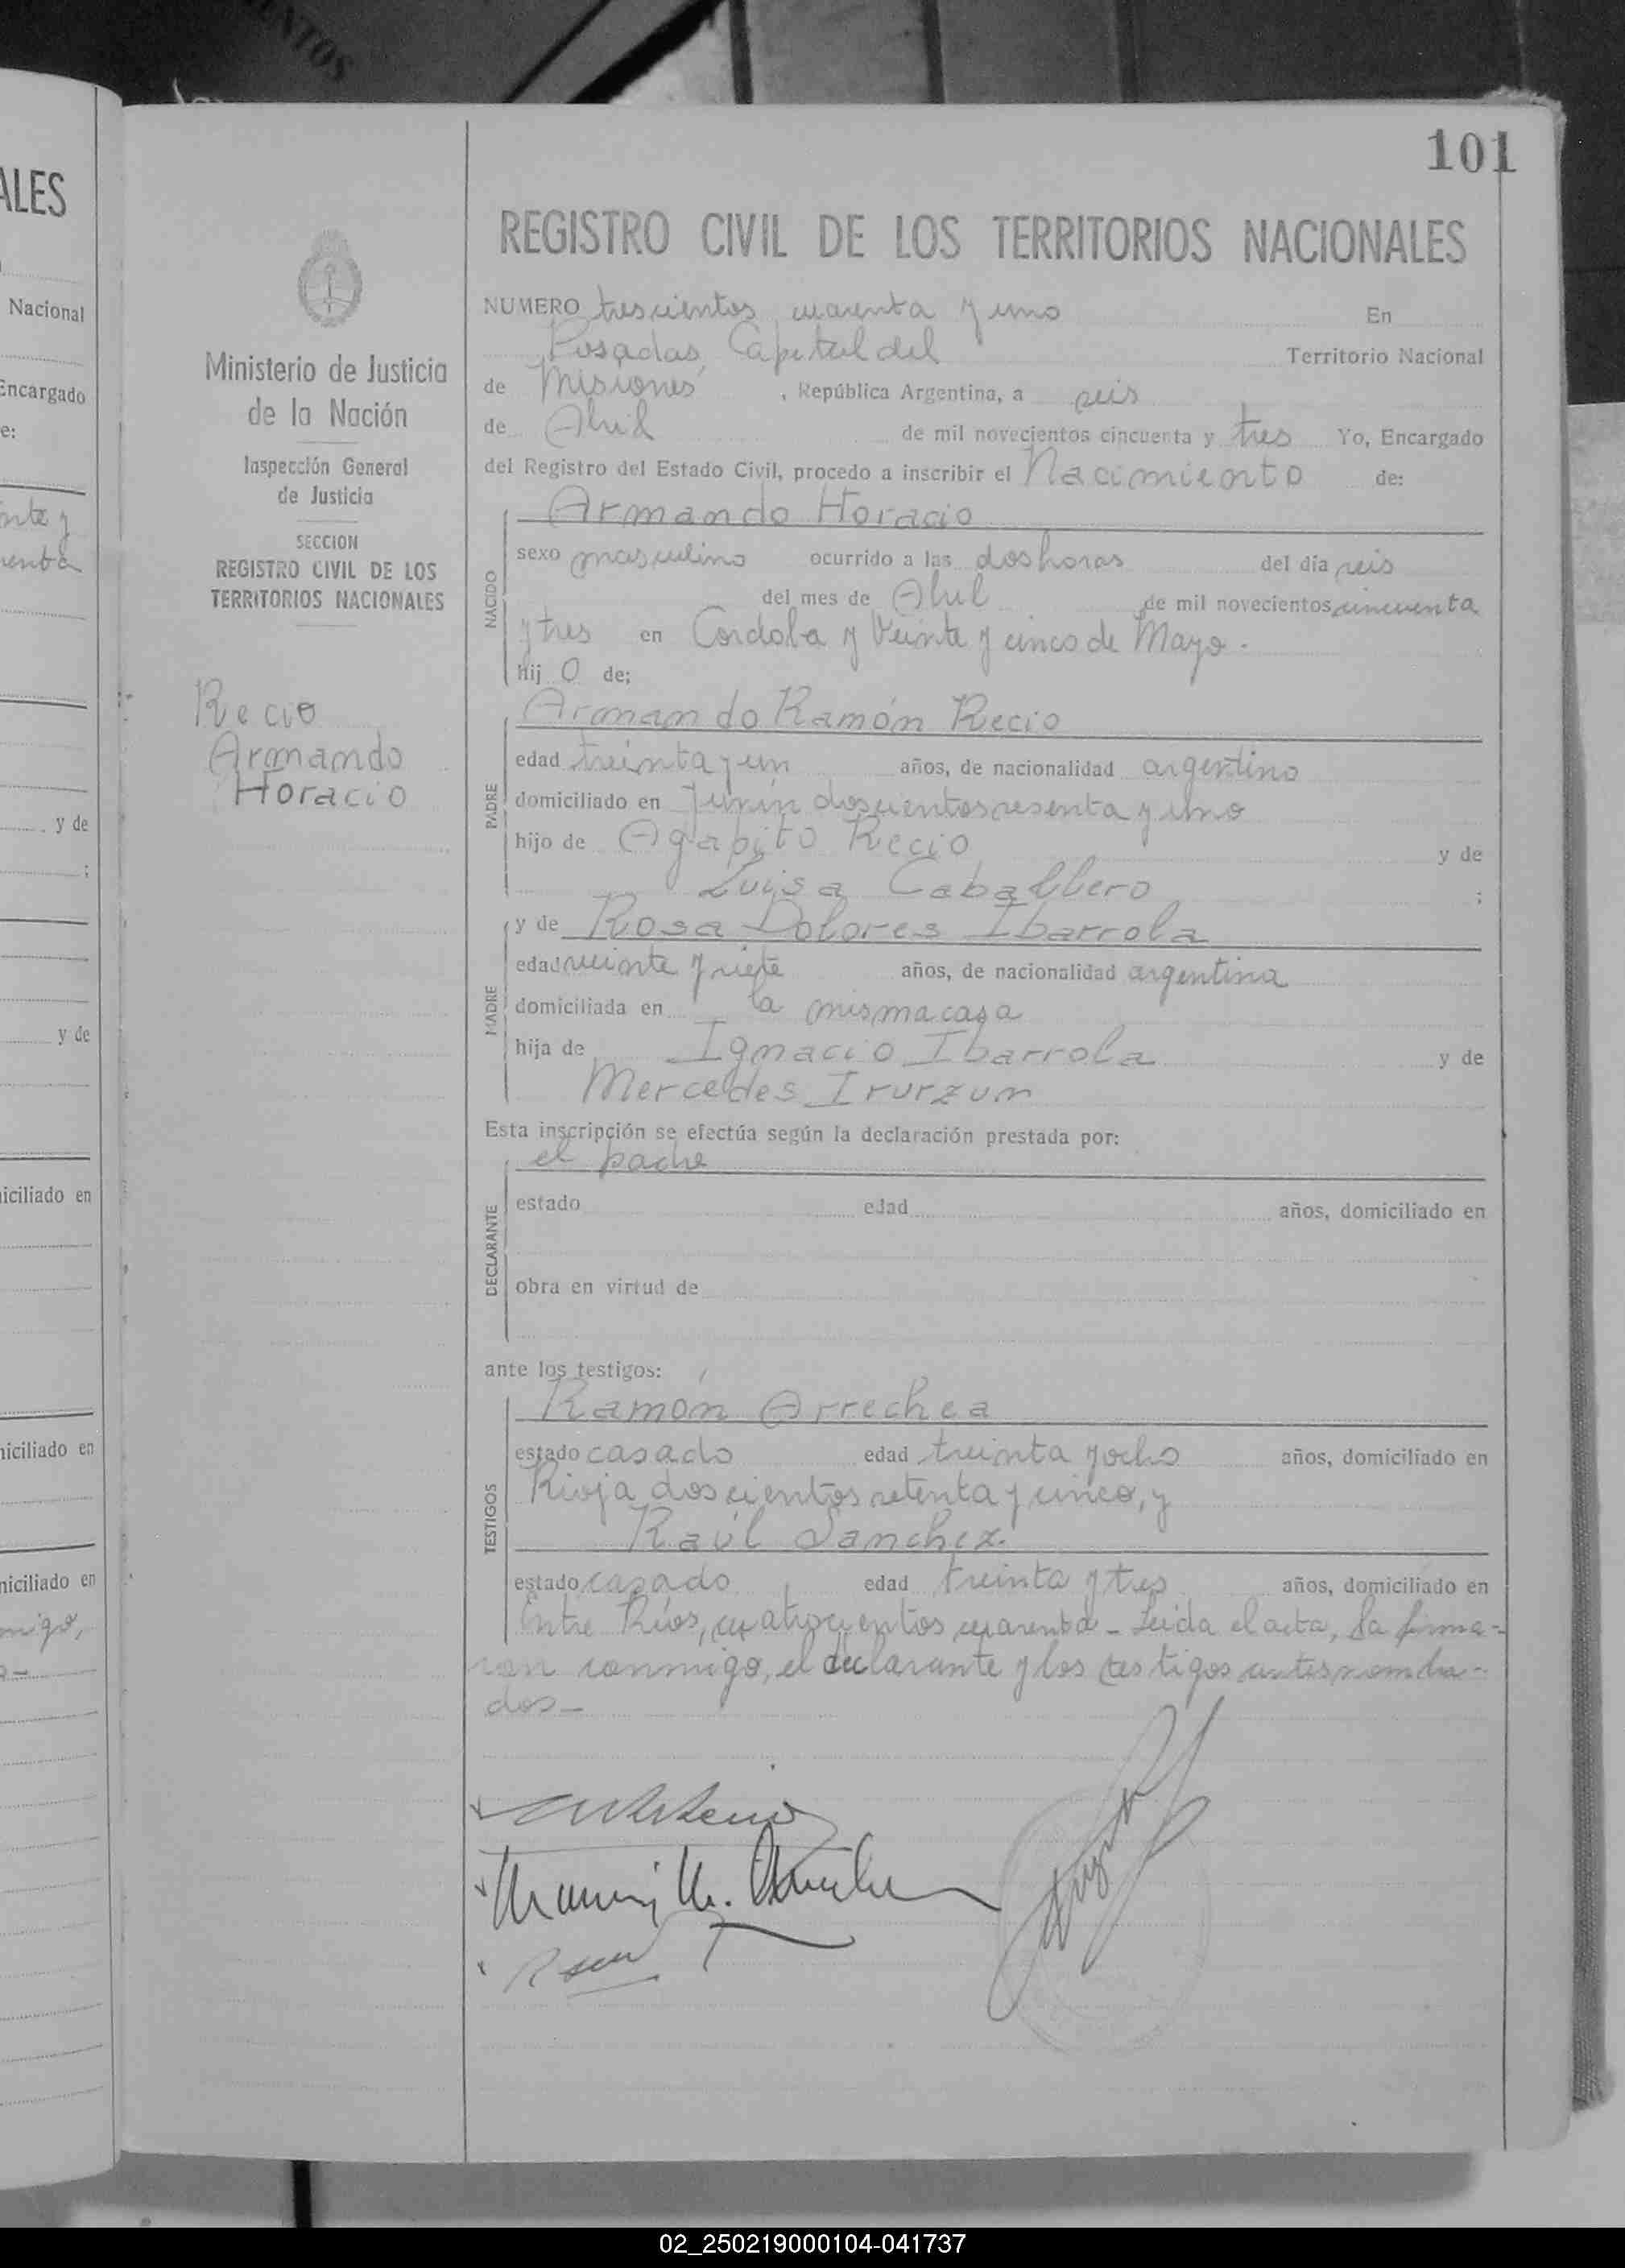 101
REGISTRO CIVIL DE LOS TERRITORIOS NACIONALES
NUMERO trescientos cuarenta y uno En
Posadas, Capital del Territorio Nacional
de Misiones, República Argentina, a seis
de Abril de mil novecientos cincuenta y tres Yo, Encargado
del Registro del Estado Civil, procedo a inscribir el Nacimiento de:
Armando Horacio
NACIDO
sexo masculino ocurrido a las dos horas del día seis
del mes de Abril de mil novecientos cincuenta
y tres en Cordoba y Veinte y cinco de Mayo.
hij o de;
Armando Ramón Recio
PADRE
edad treinta y un años, de nacionalidad argentino
domiciliado en Junín doscientos sesenta y uno
hijo de Agapito Recio y de
Luisa Caballero ;
y de Rosa Dolores Ibarrola
MADRE
edad veinte y siete años, de nacionalidad argentina
domiciliada en la misma casa
hija de Ignacio Ibarrola y de
Mercedes Irurzun
Esta inscripción se efectúa según la declaración prestada por:
el padre
DECLARANTE
estado edad años, domiciliado en
obra en virtud de
ante los testigos:
Ramón Arrechea
TESTIGOS
estado casado edad treinta y ocho años, domiciliado en
Rioja doscientos setenta y cinco, y
Raúl Sanchez.
estado casado edad treinta y tres años, domiciliado en
Entre Ríos, cuatrocientos cuarenta - Leida el acta, la firma-
ron conmigo, el declarante y los testigos antes nombra-
dos-
Ministerio de Justicia
de la Nación
Inspección General
de Justicia
SECCION
REGISTRO CIVIL DE LOS
TERRITORIOS NACIONALES
Recio
Armando
Horacio
ALES
Nacional
Encargado
e:
y de
;
y de
iciliado en
niciliado en
niciliado en
migo,
02_250219000104-041737